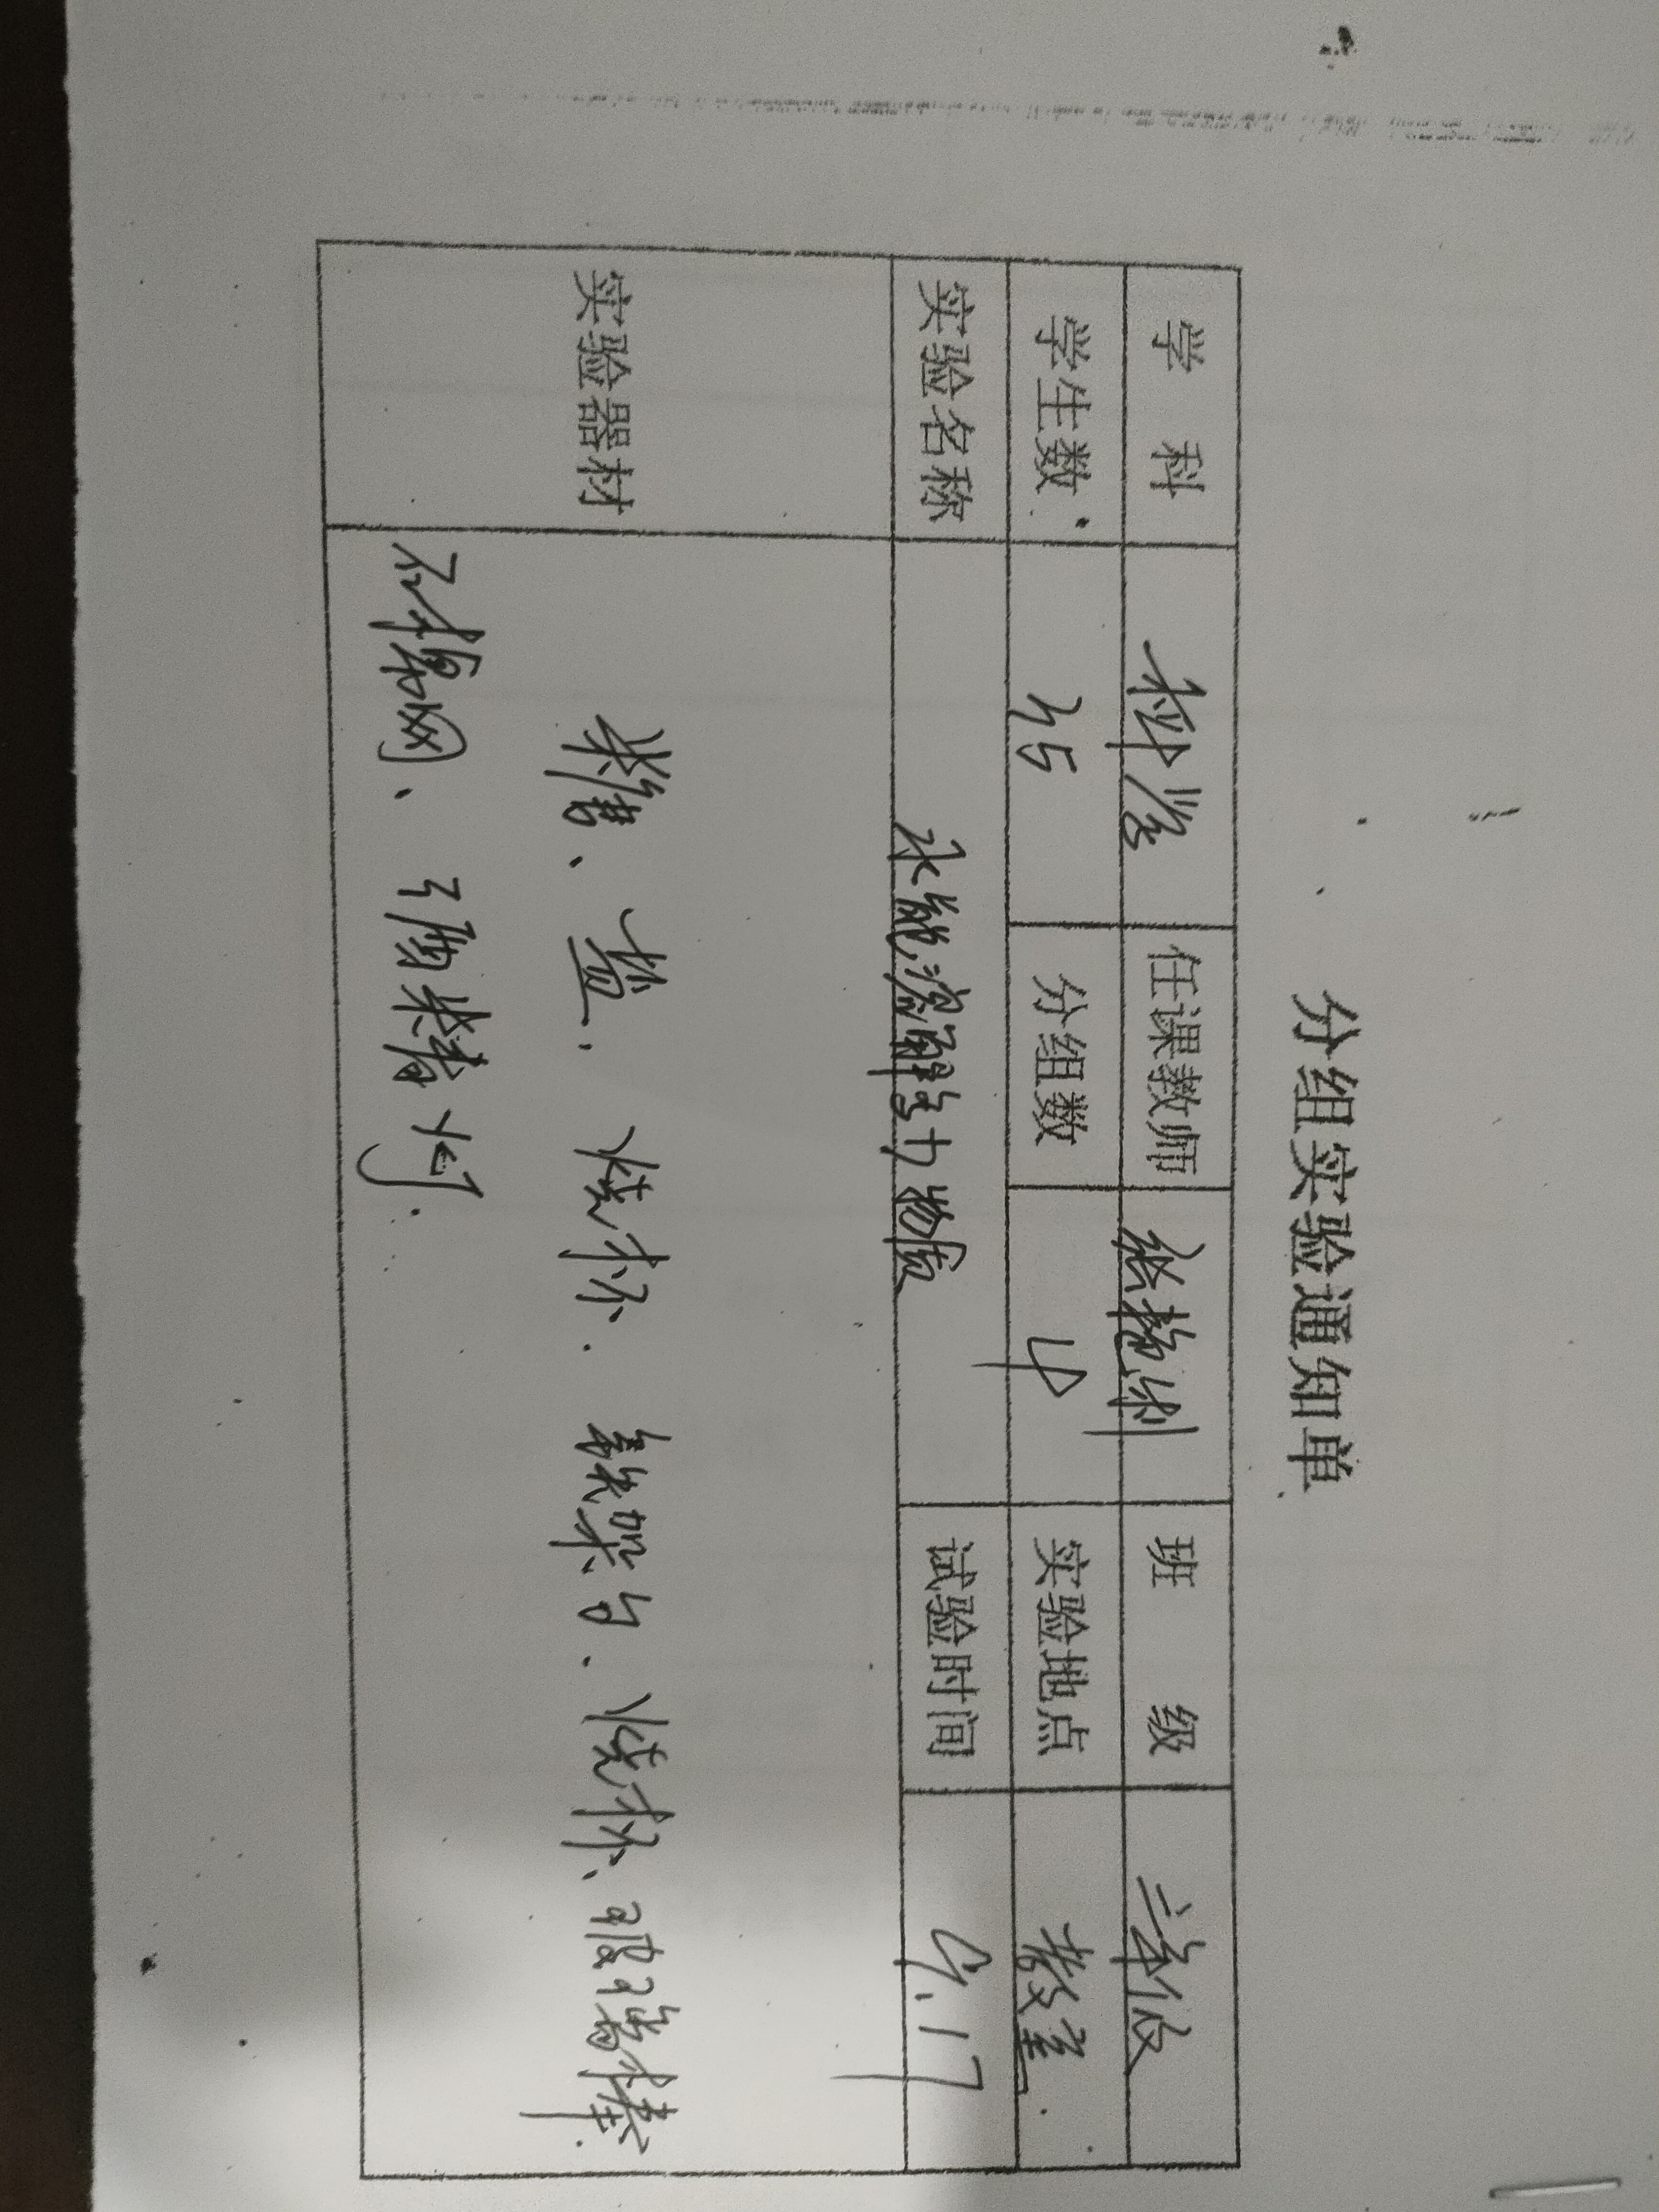 分组实验通知单
学 科 科学 任课教师 张艳利 班 级 三年级
学生数 45 分组数 4 实验地点 教室
实验名称 水能溶解多少物质 试验时间 9.17
实验器材 米糖、盐、烧杯、铁架台、烧杯、玻璃棒、
石棉网、酒精灯.